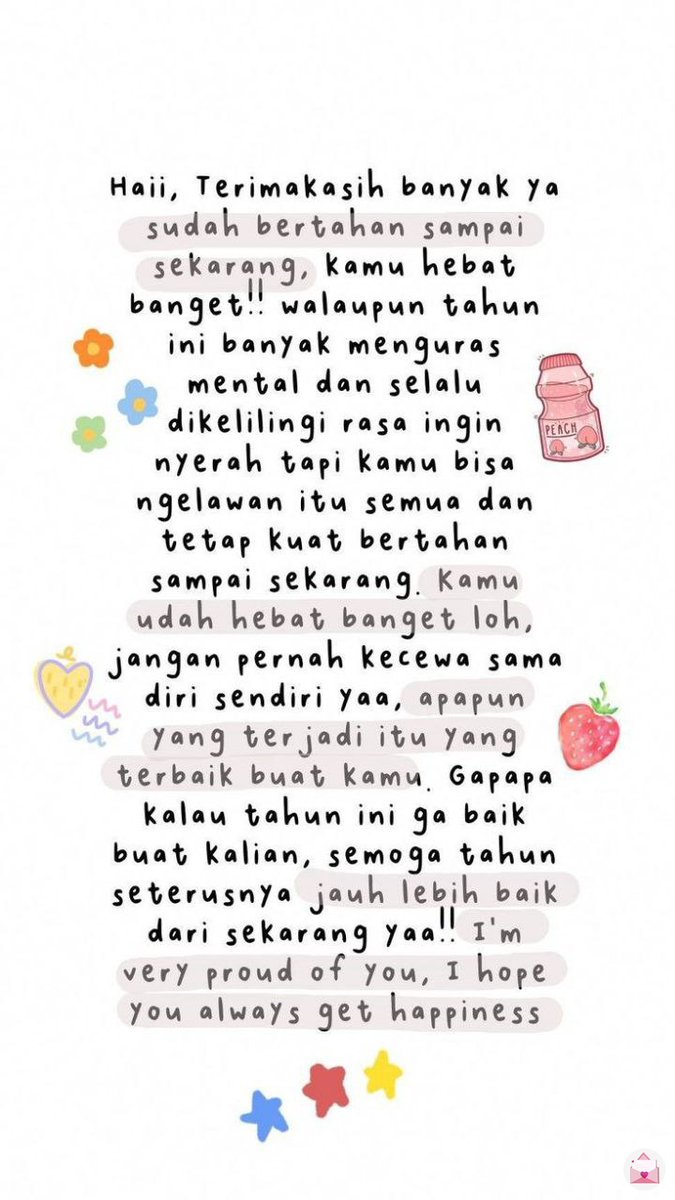 Haii, Terimakasih banyak ya
sudah bertahan sampai
sekarang, kamu hebat
banget!! walaupun tahun
ini banyak menguras
mental dan selalu
dikelilingi rasa ingin
nyerah tapi kamu bisa
ngelawan itu semua dan
tetap kuat bertahan
sampai sekarang. Kamu
udah hebat banget loh,
jangan pernah kecewa sama
diri sendiri yaa, apapun
yang terjadi itu yang
terbaik buat kamu. Gapapa
kalau tahun ini ga baik
buat kalian, semoga tahun
seterusnya jauh lebih baik
dari sekarang yaa!! I'm
very proud of you, I hope
you always get happiness
PEACH